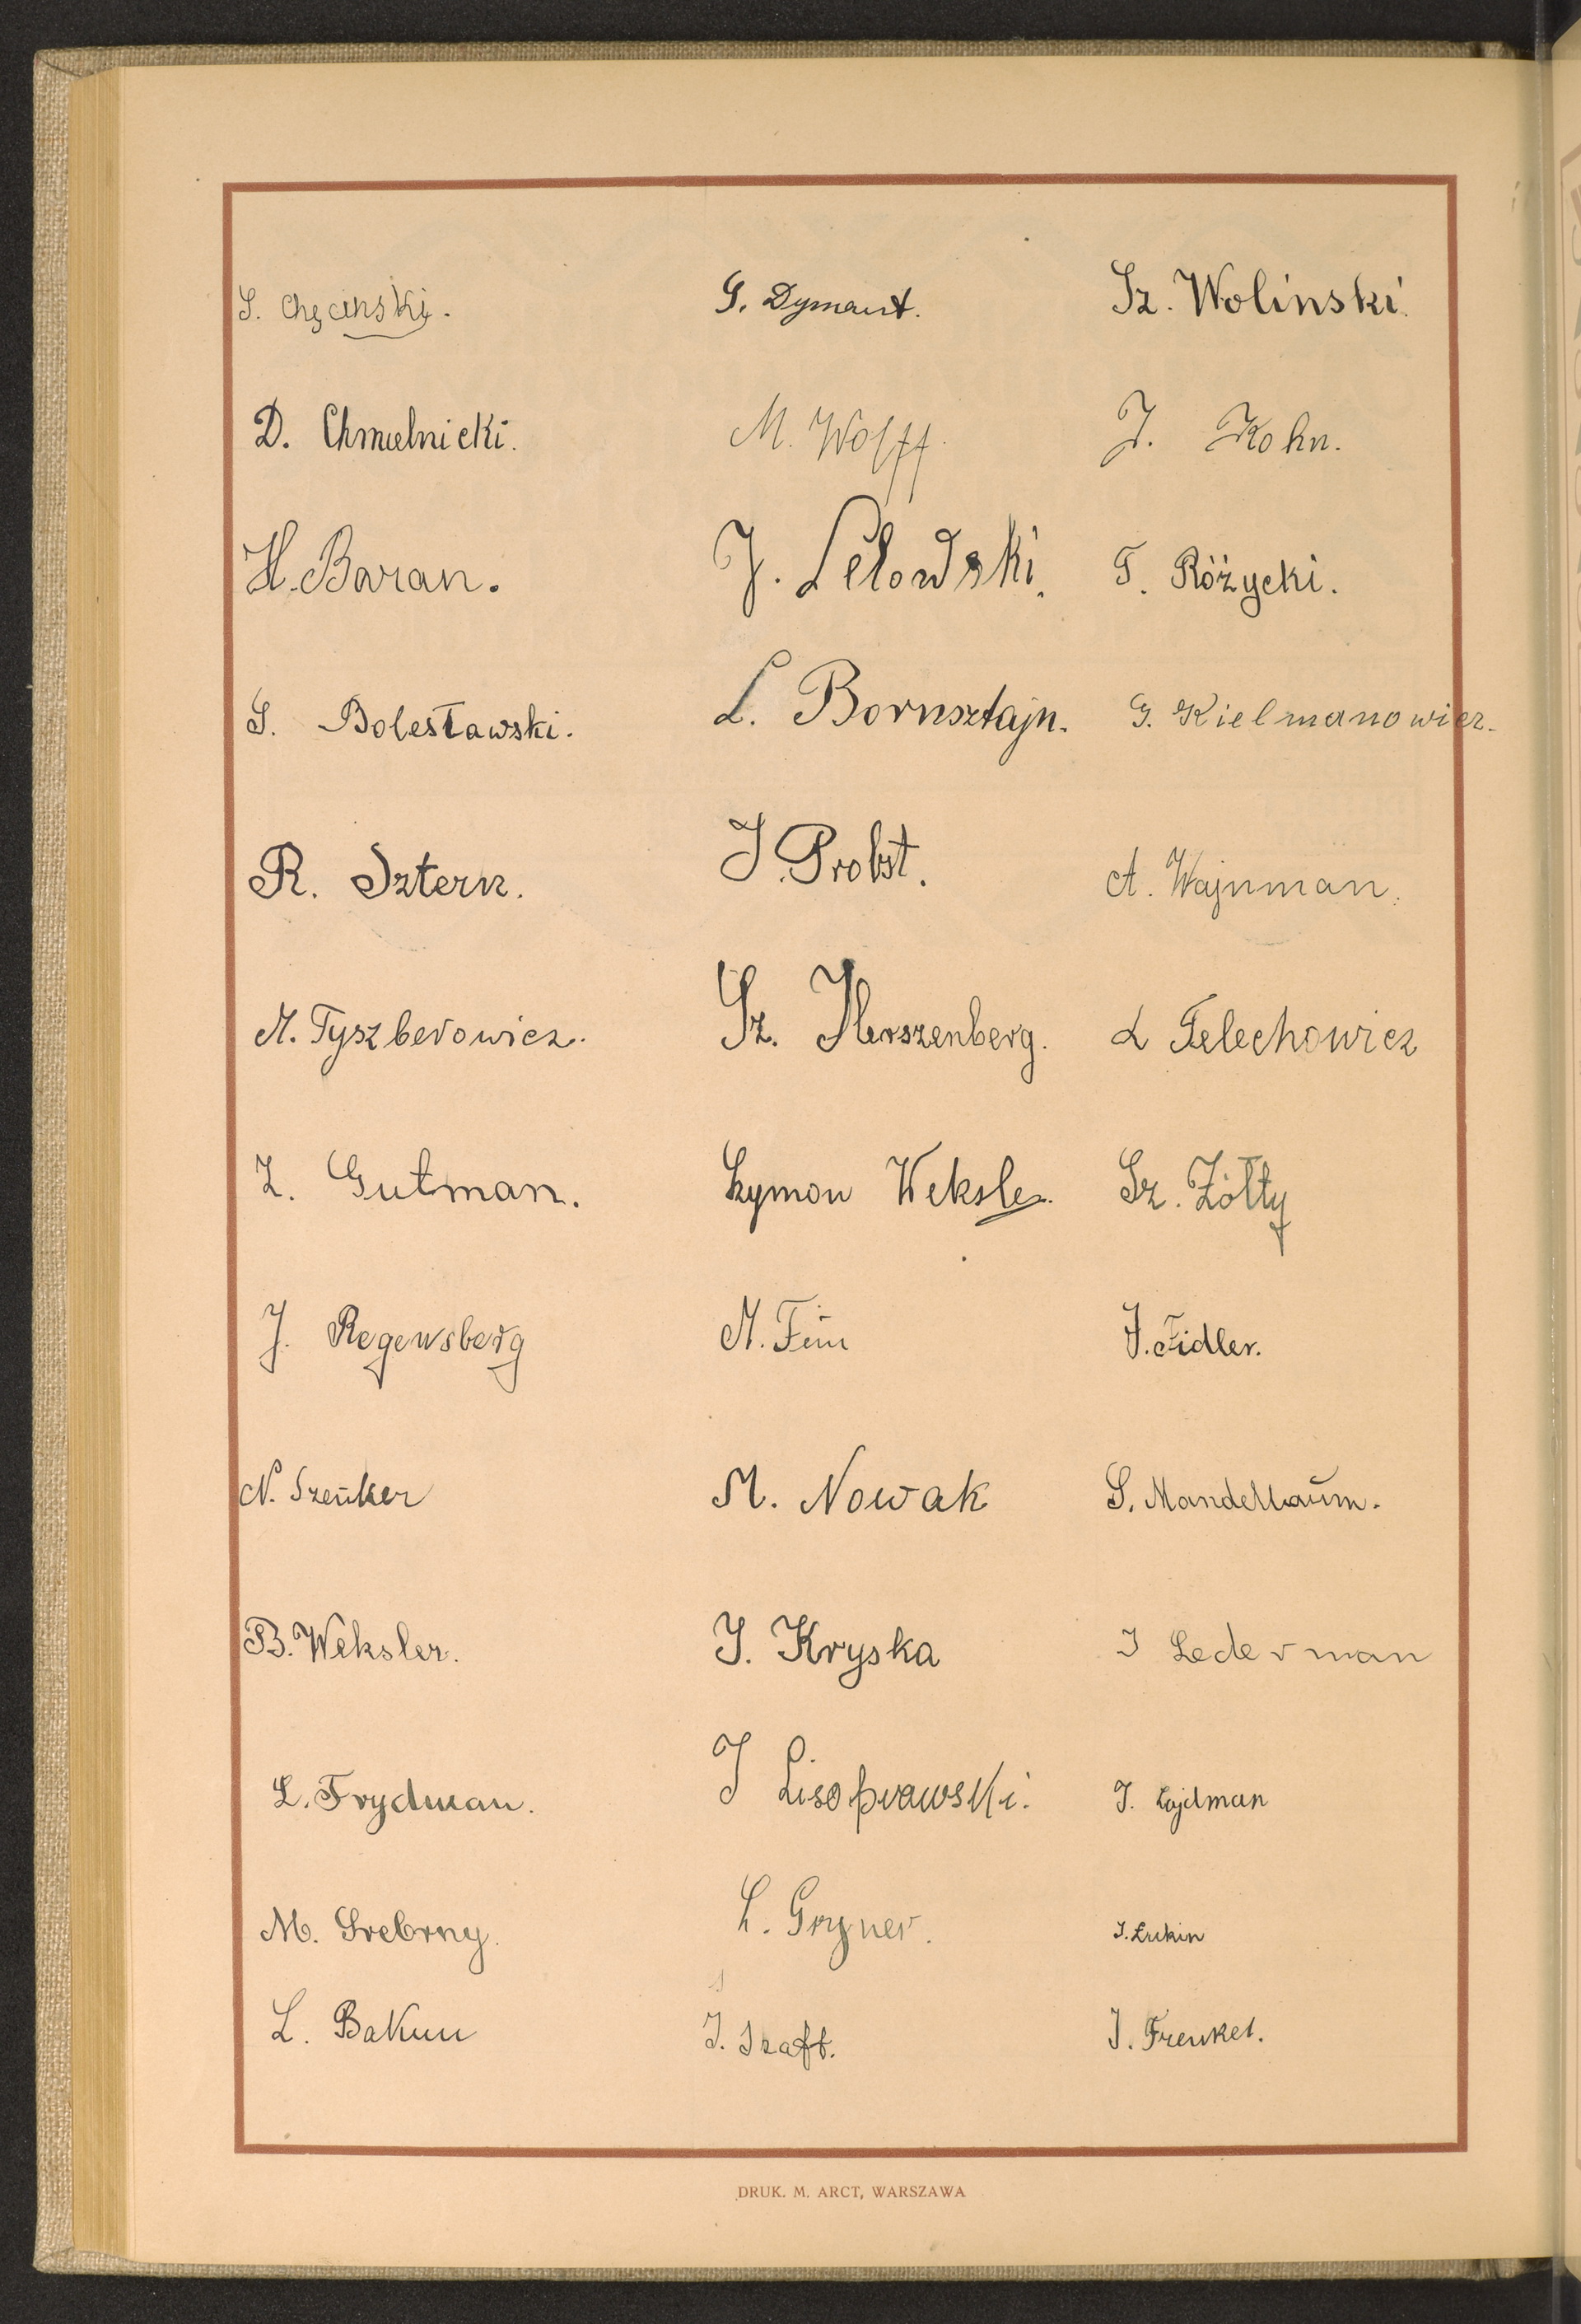 S. Chęcinski. G. Dymant. Sz. Wolinski.
D. Chmielnicki. M. Wolff. J. Kohn.
H. Baran. J. Lelowski. T. Różycki.
S. Bolesławski. L. Bornsztajn. G. Kielmanowicz.
R. Sztern. J. Probst. A. Wajnman.
M. Tyszberowicz. Sz. Herszenberg. L Felechowicz
Z. Gutman. Szymon Weksler. Sz. Żółty
J. Regensberg M. Fein J. Fidler.
N. Szenker M. Nowak S. Mandelbaum.
B. Weksler. J. Kryska I Lederman
L. Frydman. J Lisoprawski. J. Łajdman
M. Srebrny. L. Gryner. I. Lukin
L. Bakun J. Szaft. J. Frenkel.
DRUK. M. ARCT, WARSZAWA